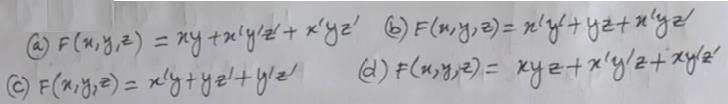 (a) F(x,y,z) = xy + x'y'z' + x'yz' (b) F(x,y,z) = x'y' + yz + x'yz'
(c) F(x,y,z) = x'y + yz' + y'z' (d) F(x,y,z) = xyz + x'y'z + xy'z'